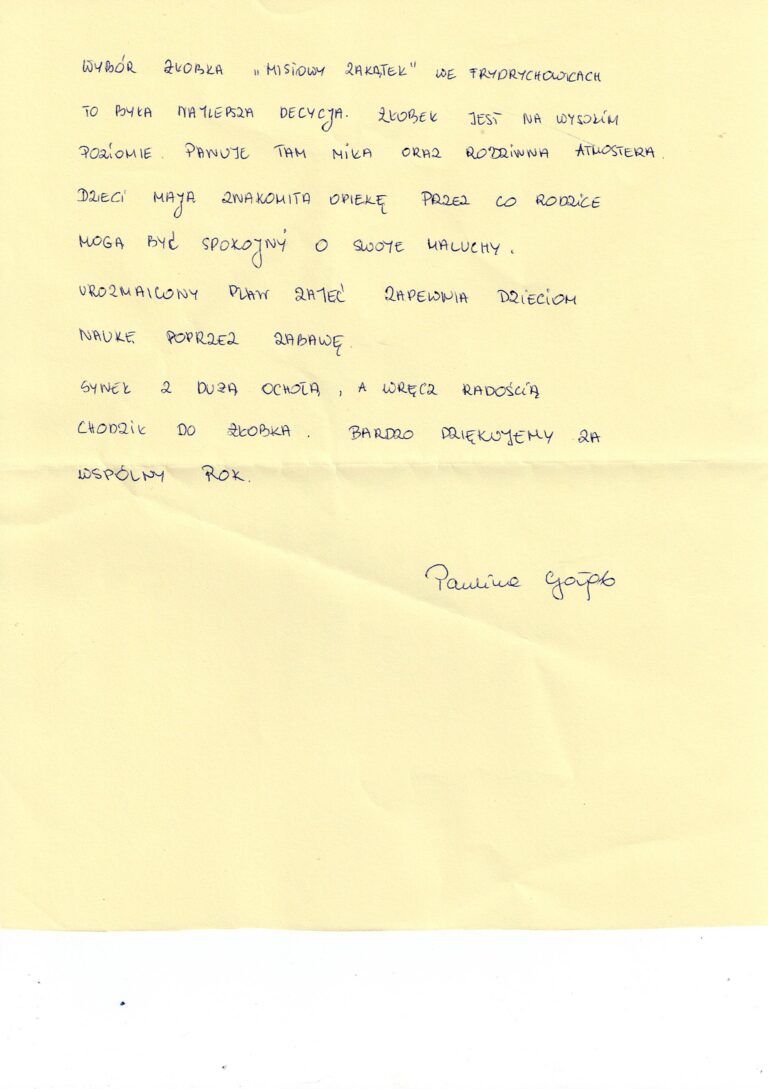 WYBÓR ŻŁOBKA „MISIOWY ZAKĄTEK" WE FRYDRYCHOWICACH
TO BYŁA NAJLEPSZA DECYCJA. ŻŁOBEK JEST NA WYSOKIM
POZIOMIE. PANUJE TAM MIŁA ORAZ RODZINNA ATMOSFERA.
DZIECI MAJĄ ZNAKOMITĄ OPIEKĘ PRZEZ CO RODZICE
MOGĄ BYĆ SPOKOJNY O SWOJE MALUCHY.
UROZMAICONY PLAN ZAJĘĆ ZAPEWNIA DZIECIOM
NAUKĘ POPRZEZ ZABAWĘ.
SYNEK Z DUŻĄ OCHOTĄ, A WRĘCZ RADOŚCIĄ
CHODZIŁ DO ŻŁOBKA. BARDZO DZIĘKUJEMY ZA
WSPÓLNY ROK.
Paulina